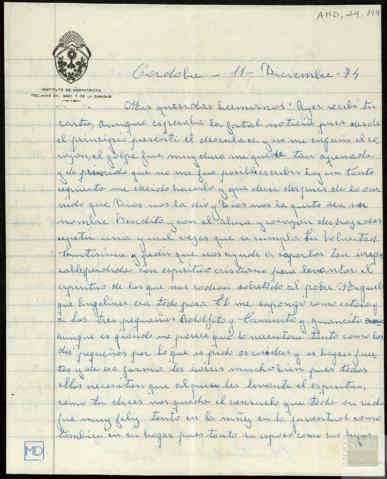 AHD, 24, 144
INSTITUTO DE ADORATRICES
ESCLAVAS DEL SMO. Y DE LA CARIDAD
Cordoba - 11 - Diciembre - 74
Mis queridas hermanas: Ayer recibí tu
carta, aunque esperaba la fatal noticia pues desde
el principio presentí el desenlace y no me engaño el co
razon, el golpe fue muy duro me quede tan apenada
y deprimida que no me fue posible escribir hoy un tanto
repuesta me decido hacerlo y que decir despues de lo ocu
rrido que Dios nos la dio y Dios nos la quito sea su
nombre Bendito y con el alma y corazon desgarrados
repetir una y mil veces que se cumpla Su Voluntad
Santisima y pedir que nos ayude a soportar tan irrepa
rable perdida con espiritu cristiano para levantar el
espiritu de los que nos rodean sobretodo al pobre Raquel
que Angelines era todo para El me supongo como estara y
a los tres pequeños Adolfito y Caminito y Juancito
aunque es grande me parece que la necesitara tanto como los
dos pequeños por lo que os pido os cuideis y os hagais fuer
tes y de esa forma les hareis mucho bien pues todos
ellos necesitan que alguien les levante el espiritu,
como tu dices nos queda el consuelo que toda su vida
fue muy feliz tanto en la niñez en la juventud como
tambien en su hogar pues tanto su esposo como sus hijos
MD